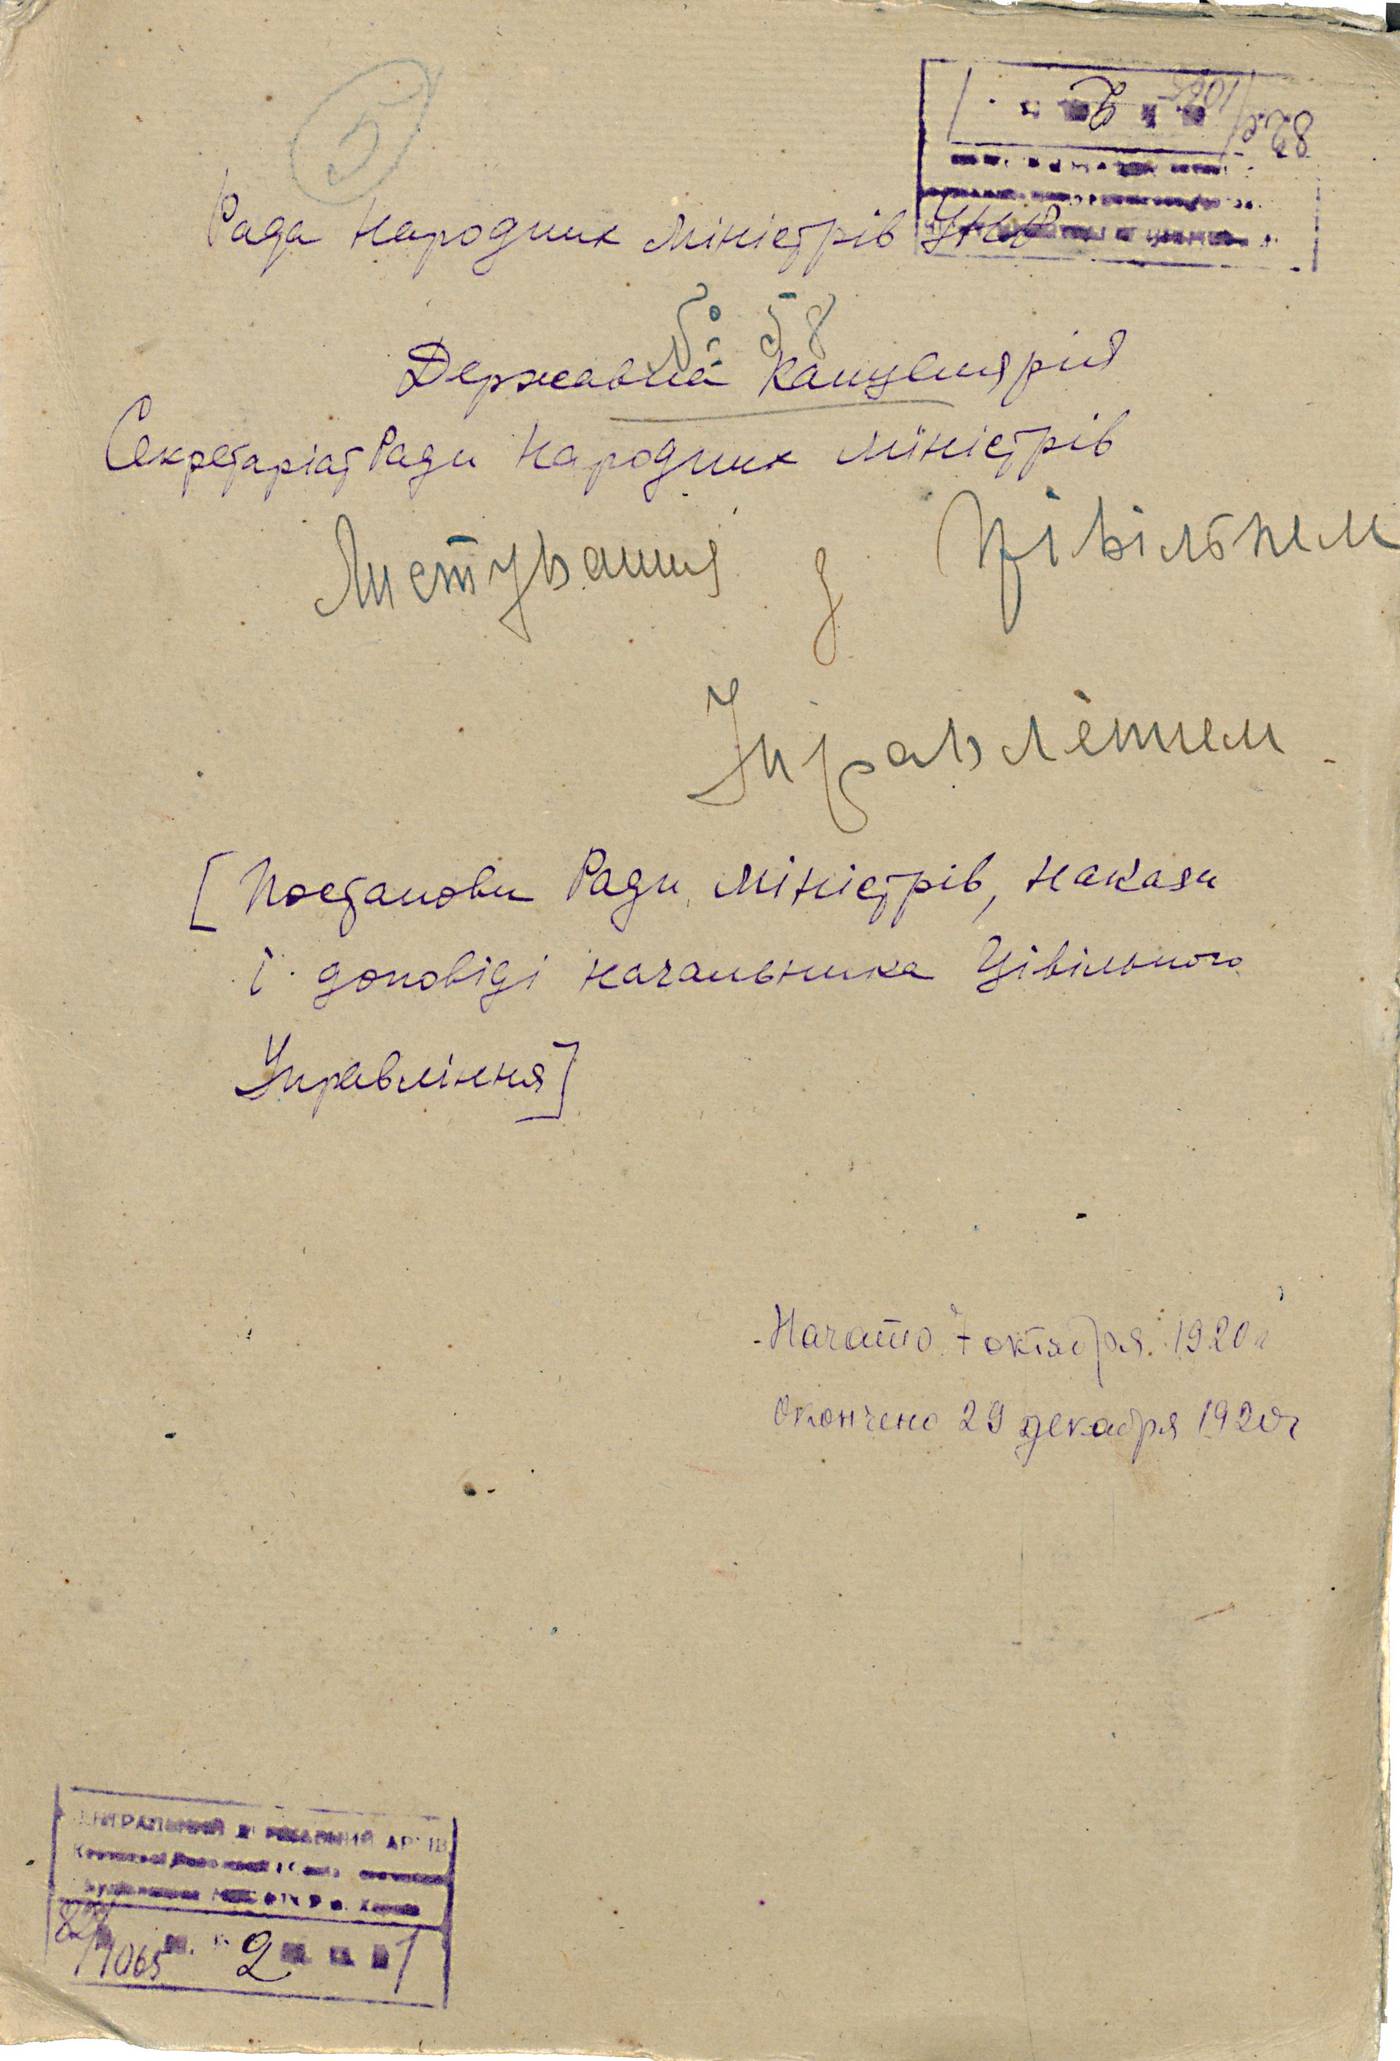 5
82с/1065 2 1
Рада Народних Міністрів УНР
№ 58
Державна Канцелярія
Секретаріат Ради Народних Міністрів
Листування з Цівільнем
Управлєнием
[Постанови Ради Міністрів, накази
і доповіді начальника Цівільного
Управління]
Начато 7 октября 1920г
Окончено 29 декабря 1920г
ЦЕНТРАЛЬНИЙ ДЕРЖАВНИЙ АРХІВ
1065 2 1